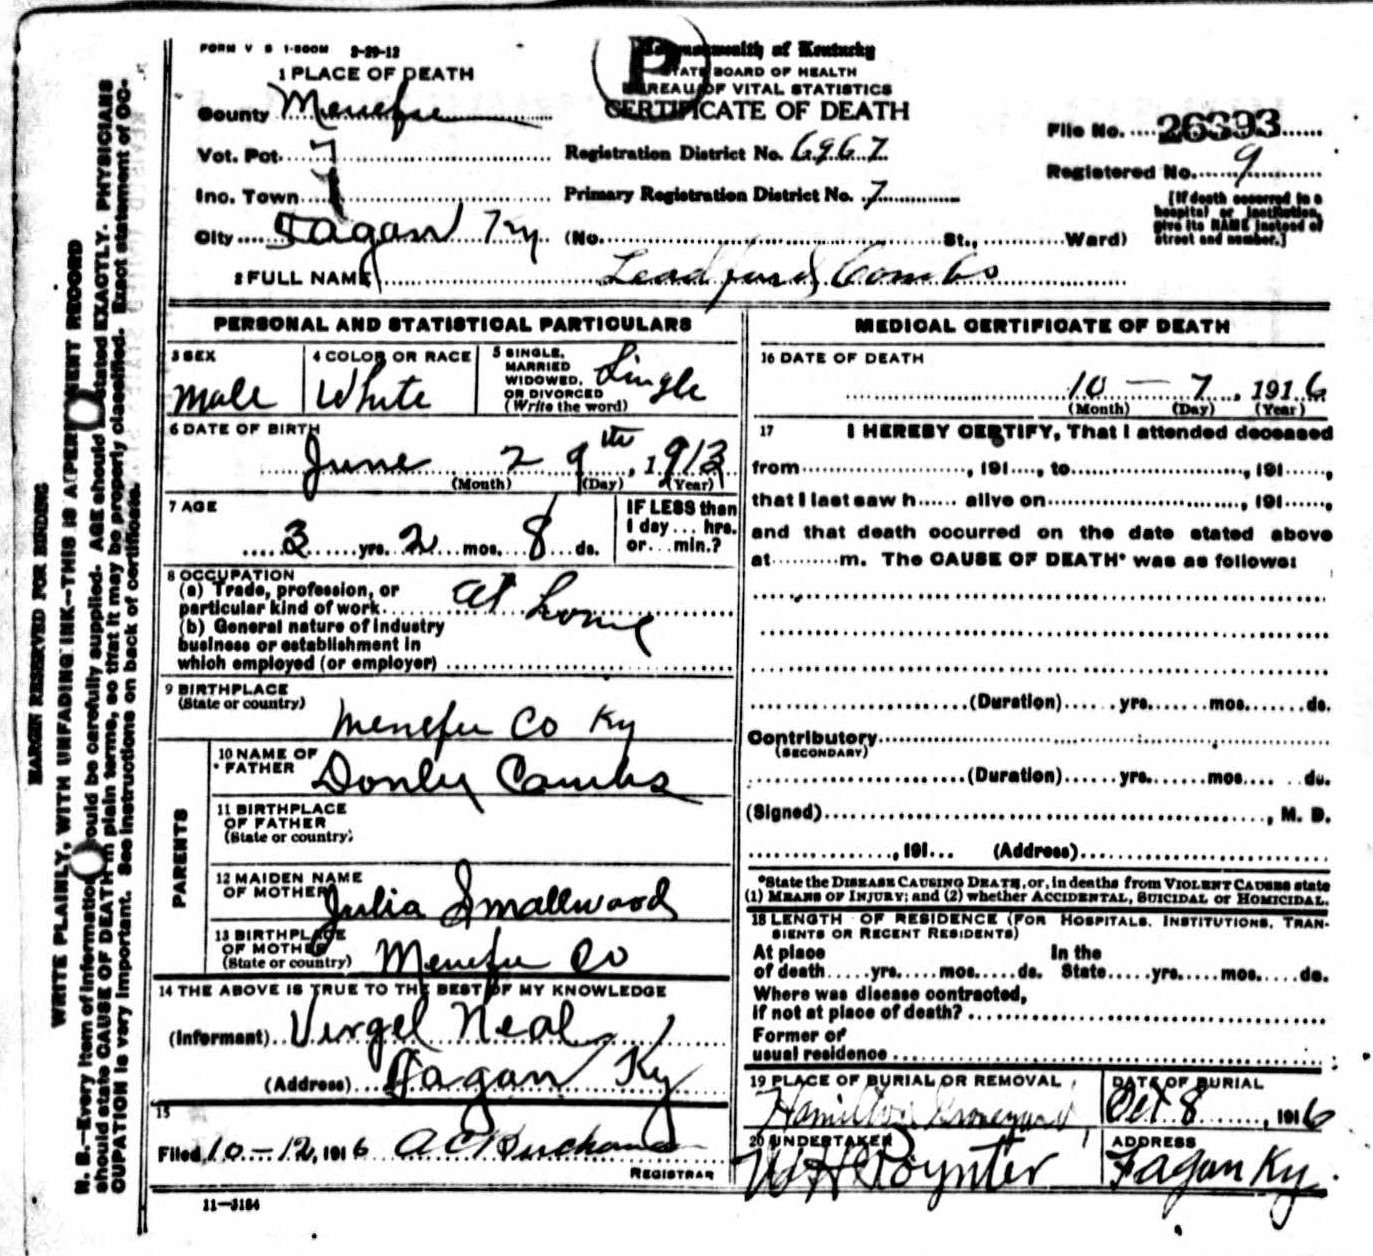 FORM V S 1-500M 2-29-12
Commonwealth of Kentucky
STATE BOARD OF HEALTH
BUREAU OF VITAL STATISTICS
CERTIFICATE OF DEATH
1 PLACE OF DEATH
County Menefee
Vot. Pct. 7
Inc. Town
City Fagan Ky (No. St., Ward)
Registration District No. 6967
Primary Registration District No. 7
File No. 26393
Registered No. 9
[If death occurred in a
hospital or institution,
give its NAME instead of
street and number.]
2 FULL NAME Leadford Combs
PERSONAL AND STATISTICAL PARTICULARS
3 SEX
Male
4 COLOR OR RACE
White
5 SINGLE,
MARRIED
WIDOWED,
OR DIVORCED
(Write the word)
Single
6 DATE OF BIRTH
June 29th, 1913
(Month) (Day) (Year)
7 AGE
3 yrs. 2 mos. 8 ds.
IF LESS than
1 day... hrs.
or... min.?
8 OCCUPATION
(a) Trade, profession, or
particular kind of work at home
(b) General nature of industry
business or establishment in
which employed (or employer)
9 BIRTHPLACE
(State or country)
Menefee Co Ky
PARENTS
10 NAME OF
FATHER Donley Combs
11 BIRTHPLACE
OF FATHER
(State or country)
12 MAIDEN NAME
OF MOTHER Julia Smallwood
13 BIRTHPLACE
OF MOTHER
(State or country) Menefee Co
14 THE ABOVE IS TRUE TO THE BEST OF MY KNOWLEDGE
(Informant) Virgel Neal
(Address) Fagan Ky
15
Filed 10-12, 1916 A C Buchanan
REGISTRAR
11-3184
MEDICAL CERTIFICATE OF DEATH
16 DATE OF DEATH
10 - 7, 1916
(Month) (Day) (Year)
17 I HEREBY CERTIFY, That I attended deceased
from , 191 , to , 191 ,
that I last saw h alive on , 191 ,
and that death occurred on the date stated above
at m. The CAUSE OF DEATH* was as follows:
(Duration) yrs. mos. ds.
Contributory
(SECONDARY)
(Duration) yrs. mos. ds.
(Signed) , M. D.
, 191 (Address)
*State the DISEASE CAUSING DEATH, or, in deaths from VIOLENT CAUSES state
(1) MEANS OF INJURY; and (2) whether ACCIDENTAL, SUICIDAL or HOMICIDAL.
18 LENGTH OF RESIDENCE (FOR HOSPITALS, INSTITUTIONS, TRAN-
SIENTS OR RECENT RESIDENTS)
At place In the
of death yrs. mos. ds. State yrs. mos. ds.
Where was disease contracted,
if not at place of death?
Former or
usual residence
19 PLACE OF BURIAL OR REMOVAL
Hamilton Graveyard
DATE OF BURIAL
Oct 8, 1916
20 UNDERTAKER
W H Poynter
ADDRESS
Fagan Ky
MARGIN RESERVED FOR BINDING
WRITE PLAINLY, WITH UNFADING INK—THIS IS A PERMANENT RECORD
N. B.—Every item of information should be carefully supplied. AGE should be stated EXACTLY. PHYSICIANS
should state CAUSE OF DEATH in plain terms, so that it may be properly classified. Exact statement of OC-
CUPATION is very important. See instructions on back of certificate.